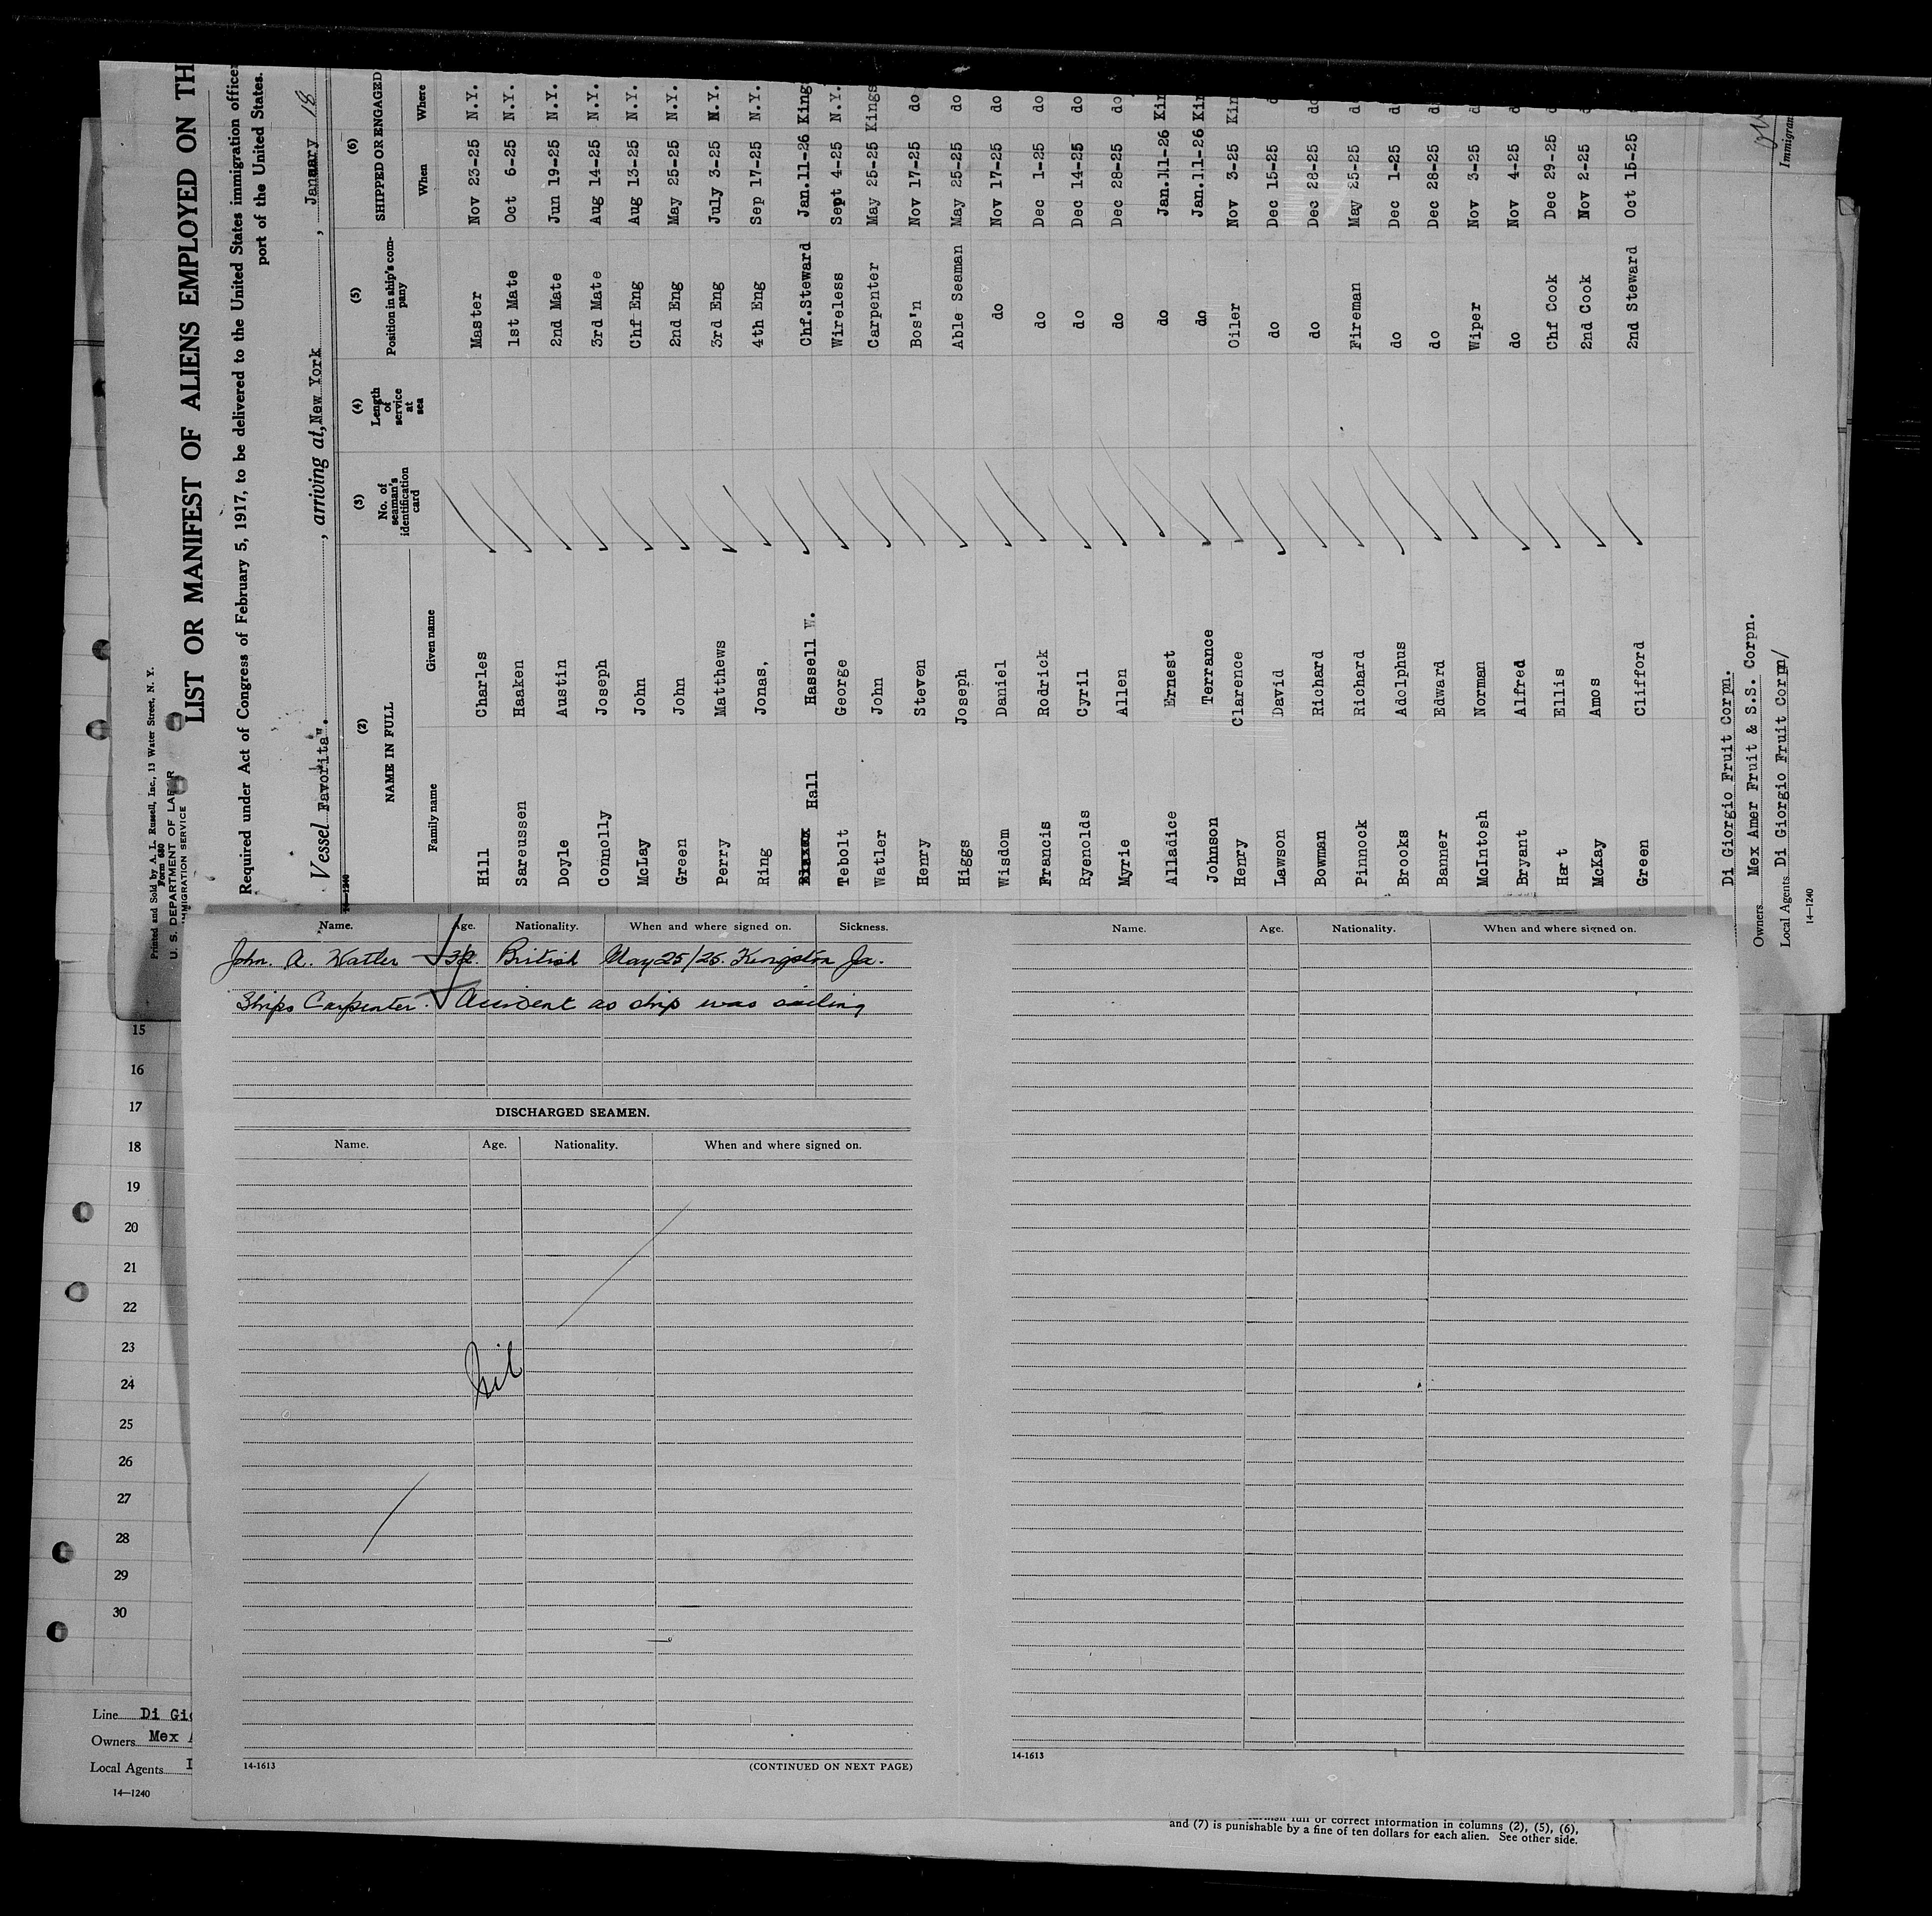 Printed and Sold by A. L. Russell, Inc., 13 Water Street, N. Y.
Form 680
U. S. DEPARTMENT OF LABOR
IMMIGRATION SERVICE
LIST OR MANIFEST OF ALIENS EMPLOYED ON TH
Required under Act of Congress of February 5, 1917, to be delivered to the United States immigration officer
port of the United States.
Vessel Favorita"., arriving at, New York, January 18
14-1240
(2) (3) (4) (5) (6)
NAME IN FULL No. of seaman's identification card Length of service at sea Position in ship's company SHIPPED OR ENGAGED
Family name Given name When Where
Hill Charles Master Nov 23-25 N.Y.
Sareussen Haaken 1st Mate Oct 6-25 N.Y.
Doyle Austin 2nd Mate Jun 19-25 N.Y.
Connolly Joseph 3rd Mate Aug 14-25 N.Y.
McLay John Chf Eng Aug 13-25 N.Y.
Green John 2nd Eng May 25-25 N.Y.
Perry Matthews 3rd Eng July 3-25 N.Y.
Ring Jonas, 4th Eng Sep 17-25 N.Y.
Hall Hassell W. Chf.Steward Jan.11-26 King
Tebolt George Wireless Sept 4-25 N.Y.
Watler John Carpenter May 25-25 Kings
Henry Steven Bos'n Nov 17-25 do
Higgs Joseph Able Seaman May 25-25 do
Wisdom Daniel do Nov 17-25 do
Francis Rodrick do Dec 1-25 do
Ryenolds Cyril do Dec 14-25 do
Myrie Allen do Dec 28-25 do
Alladice Ernest do Jan.11-26 Kin
Johnson Terrance do Jan.11-26 Kin
Henry Clarence Oiler Nov 3-25 Kin
Lawson David do Dec 15-25 d
Bowman Richard do Dec 28-25 do
Pinnock Richard Fireman May 25-25 d
Brooks Adolphus do Dec 1-25 do
Banner Edward do Dec 28-25 d
McIntosh Norman Wiper Nov 3-25 d
Bryant Alfred do Nov 4-25 d
Hart Ellis Chf Cook Dec 29-25 d
McKay Amos 2nd Cook Nov 2-25
Green Clifford 2nd Steward Oct 15-25
Di Giorgio Fruit Corpn.
Owners Mex Amer Fruit & S.S. Corpn.
Local Agents Di Giorgio Fruit Corpn/
14-1240
Immigran
Name. Age. Nationality. When and where signed on. Sickness.
John. A. Watler British May 25/25. Kingston Ja.
Ships Carpenter. Accident as ship was sailing
DISCHARGED SEAMEN.
Name. Age. Nationality. When and where signed on.
Nil
14-1613 (CONTINUED ON NEXT PAGE)
Name. Age. Nationality. When and where signed on.
14-1613
15
16
17
18
19
20
21
22
23
24
25
26
27
28
29
30
Line Di Gio
Owners Mex A
Local Agents
14-1240
full or correct information in columns (2), (5), (6),
and (7) is punishable by a fine of ten dollars for each alien. See other side.